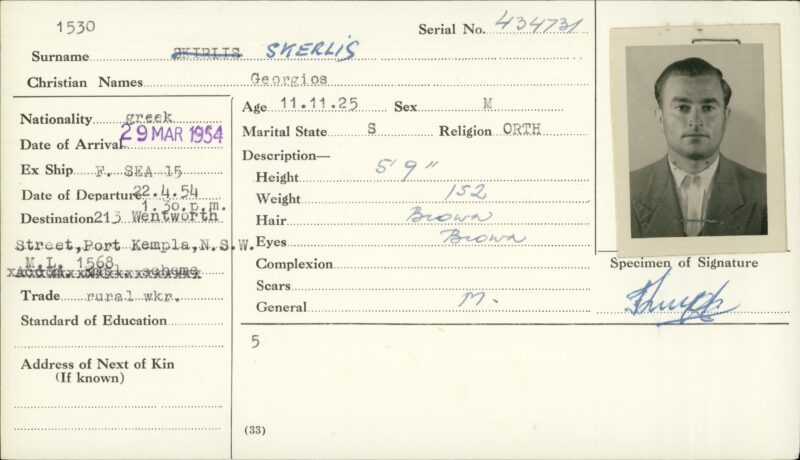 1530
Serial No. 434731
Surname SKIRLIS SKERLIS
Christian Names Georgios
Nationality greek
Date of Arrival 29 MAR 1954
Ex Ship F. SEA 15
Date of Departure 22.4.54
1.30.p.m.
Destination 213 Wentworth
Street,Port Kempla,N.S.W.
M.L. 1568
Trade rural wkr.
Standard of Education
Address of Next of Kin
(If known)
Age 11.11.25 Sex M
Marital State S Religion ORTH
Description—
Height 5' 9"
Weight 152
Hair Brown
Eyes Brown
Complexion
Scars
General M.
5
(33)
Specimen of Signature